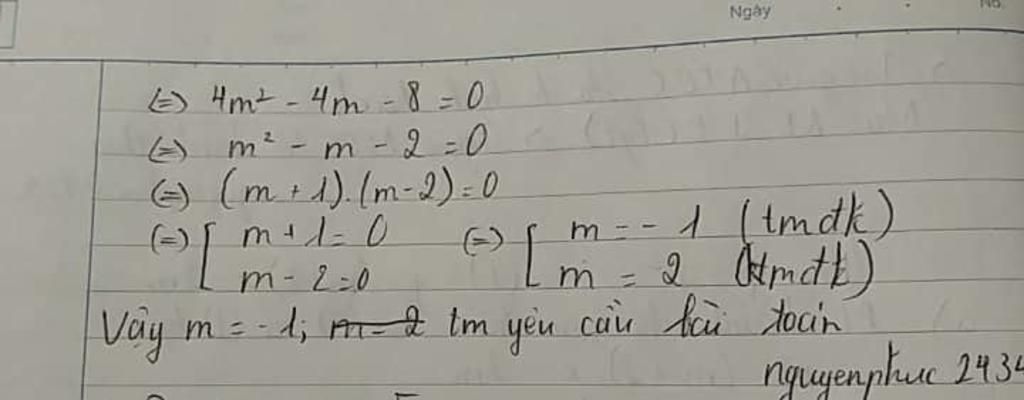 Ngày No.
(=) 4m² - 4m - 8 = 0
(=) m² - m - 2 = 0
(=) (m + 1).(m - 2) = 0
(=) [ m + 1 = 0 (=) [ m = - 1 (tmđk)
m - 2 = 0 m = 2 (ktmđk)
Vậy m = -1; m = 2 tm yêu cầu bài toán
nguyenphuc 2434